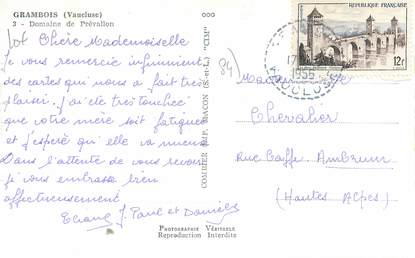 GRAMBOIS (Vaucluse)
3 - Domaine de Prévallon
Chère Mademoiselle
je vous remercie infiniment
des cartes qui nous a fait très
plaisir. j'ai été très touchée
que votre mère soit fatiguée
et j'espère qu'elle va mieux
Dans l'attente de vous revoir
je vous embrasse bien
affectueusement
Eliane J. Paul et Danièle
COMBIER IMP. MACON (S.-et-L.) "CIM"
PHOTOGRAPHIE VÉRITABLE
Reproduction Interdite
84)
REPUBLIQUE FRANÇAISE
12f
17
1955
VAUCLUSE
Chevalier
Rue Caffe Ambrun
(Hautes Alpes)